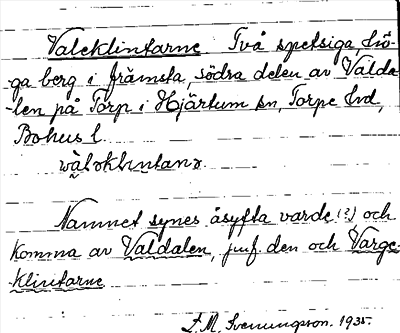 Valeklintarne Två spetsiga, hö-
ga berg i främsta, södra delen av Valda-
len på Torp i Hjärtum sn, Torpe hd,
Bohus l.
Namnet synes åsyfta varde (?) och
komma av Valdalen, jmf. den och Varge-
klintarne
L. M. Svenungsson. 1935.